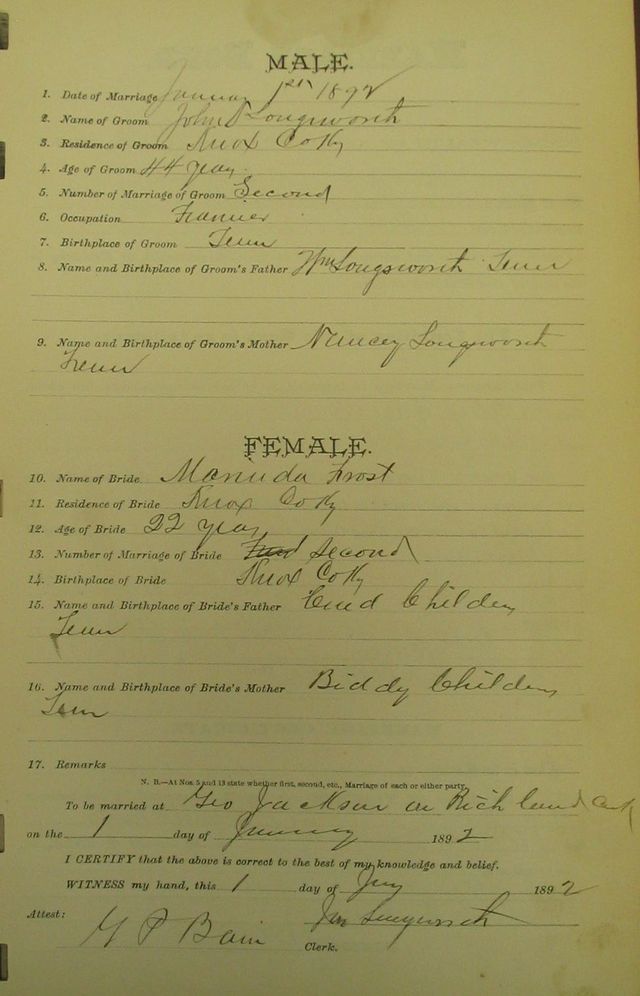 MALE.
1. Date of Marriage January 1st 1892
2. Name of Groom John Longsworth
3. Residence of Groom Knox Co Ky
4. Age of Groom 44 years
5. Number of Marriage of Groom Second
6. Occupation Farmer
7. Birthplace of Groom Tenn
8. Name and Birthplace of Groom's Father Wm Longsworth Tenn
9. Name and Birthplace of Groom's Mother Nancey Longsworth
Tenn
FEMALE.
10. Name of Bride Frost
11. Residence of Bride Knox Co Ky
12. Age of Bride 22 years
13. Number of Marriage of Bride Second
14. Birthplace of Bride Knox Co Ky
15. Name and Birthplace of Bride's Father Childers
Tenn
16. Name and Birthplace of Bride's Mother Biddy Childers
Tenn
17. Remarks
N. B.—At Nos. 5 and 13 state whether first, second, etc., Marriage of each or either party.
To be married at Geo Jackson on Richland Creek
on the 1 day of January 1892
I CERTIFY that the above is correct to the best of my knowledge and belief.
WITNESS my hand, this 1 day of Jany 1892
Attest: Longsworth
Bain Clerk.